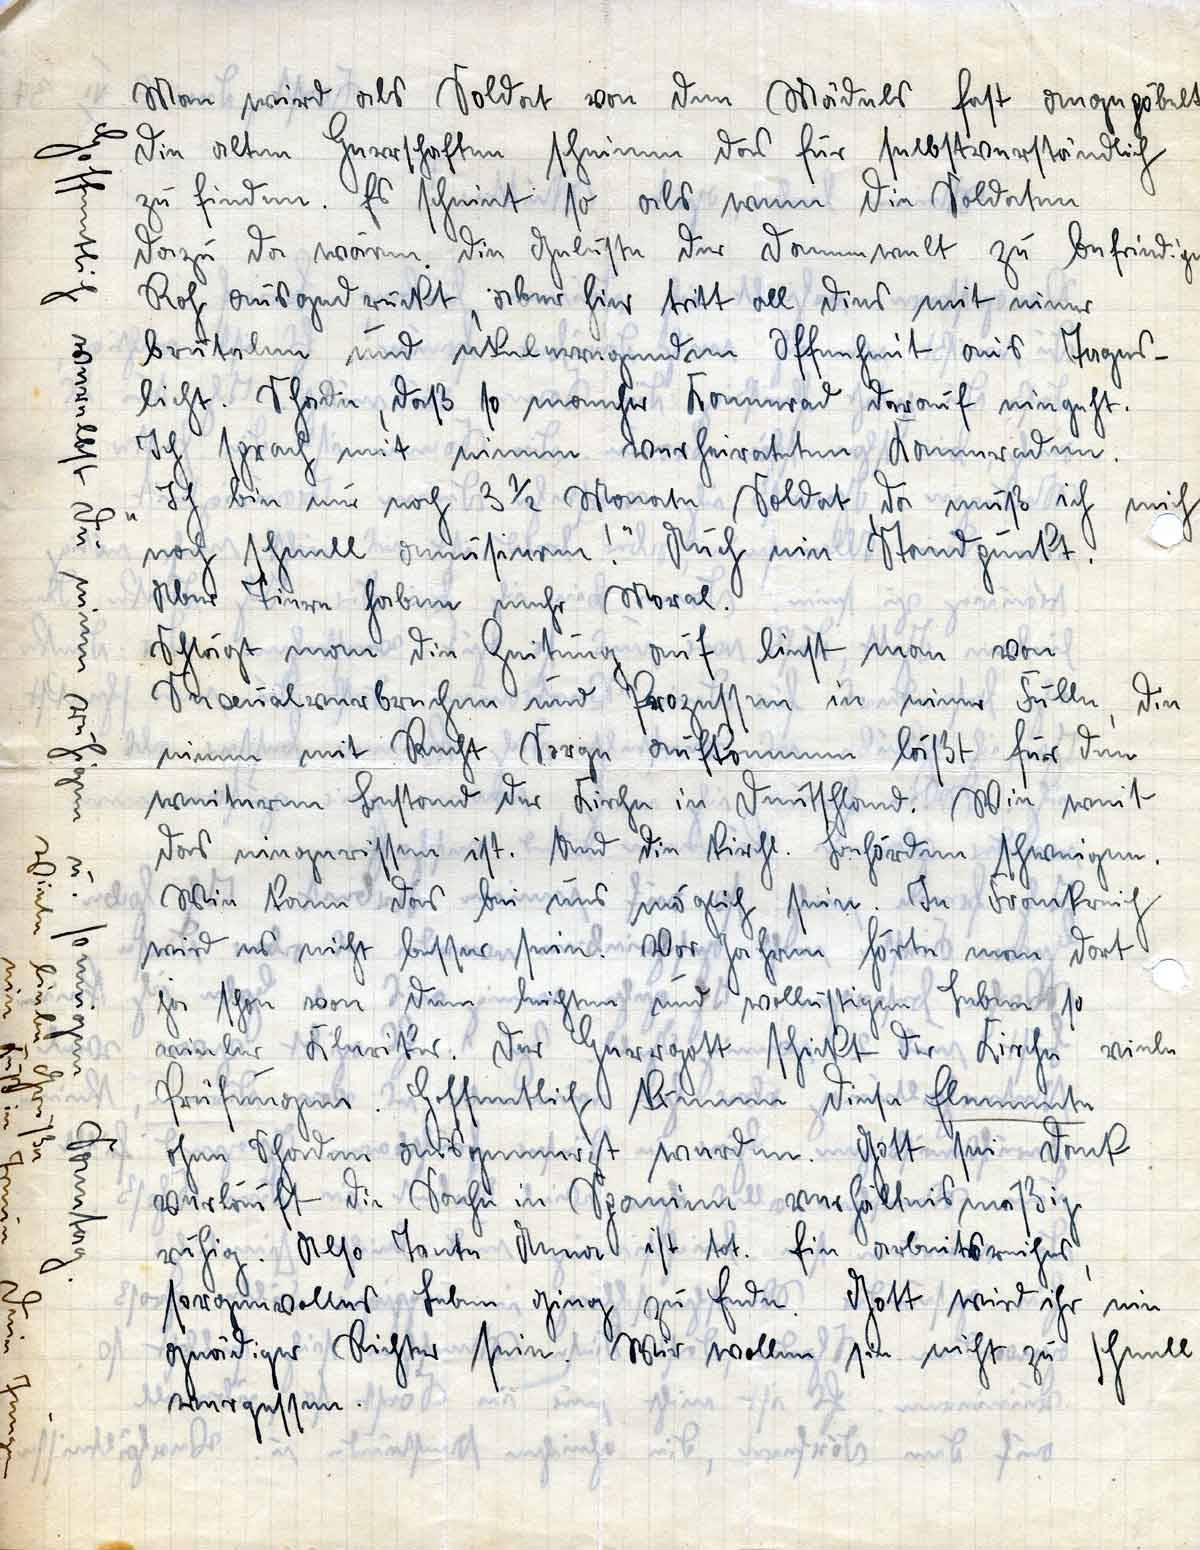 Man wird als Soldat von den Mädels fast angepöbelt
Die alten Herrschaften scheinen das für selbstverständlich
zu finden. Es scheint so als wenn die Soldaten
dazu da wären, die Gelüste der Damenwelt zu befriedigen
Roh ausgedrückt, aber hier tritt all dies mit einer
brutalen und ekelerregenden Offenheit ans Tages-
licht. Schade, daß so mancher Kamerad darauf eingeht.
Ich sprach mit einem verheirateten Kameraden.
"Ich bin nur noch 3 ½ Monate Soldat da muß ich mich
noch schnell amüsieren!" Auch ein Standpunkt.
Aber Tiere haben mehr Moral.
Schlägt man die Zeitung auf liest man von
Sexualverbrechen und Prozessen in einer Fülle, die
einem mit Recht Sorge aufkommen läßt für den
weiteren Bestand der Kirche in Deutschland. Wie weit
das eingerissen ist. Und die kirchl. Behörden schweigen.
Wie kann das bei uns möglich sein. In Frankreich
wird es nicht besser sein. Vor Jahren hörte man dort
ja schon von dem leichten und wollüstigen Leben so
vieler Kleriker. Der Herrgott schickt der Kirche viele
Prüfungen. Hoffentlich können diese Elemente
ohne Schaden ausgemerzt werden. Gott sei Dank
verläuft die Sache in Spanien verhältnismäßig
ruhig. Also Tante Anna ist tot. Ein arbeitsreiches,
sorgenvolles Leben ging zu Ende. Gott wird ihr ein
gnädiger Richter sein. Wir wollen sie nicht zu schnell
vergessen.
Hoffentlich verlebst Du einen ruhigen u. sonnigen Sonntag.
Viele liebe Grüße
ein Kuß in Treue Dein